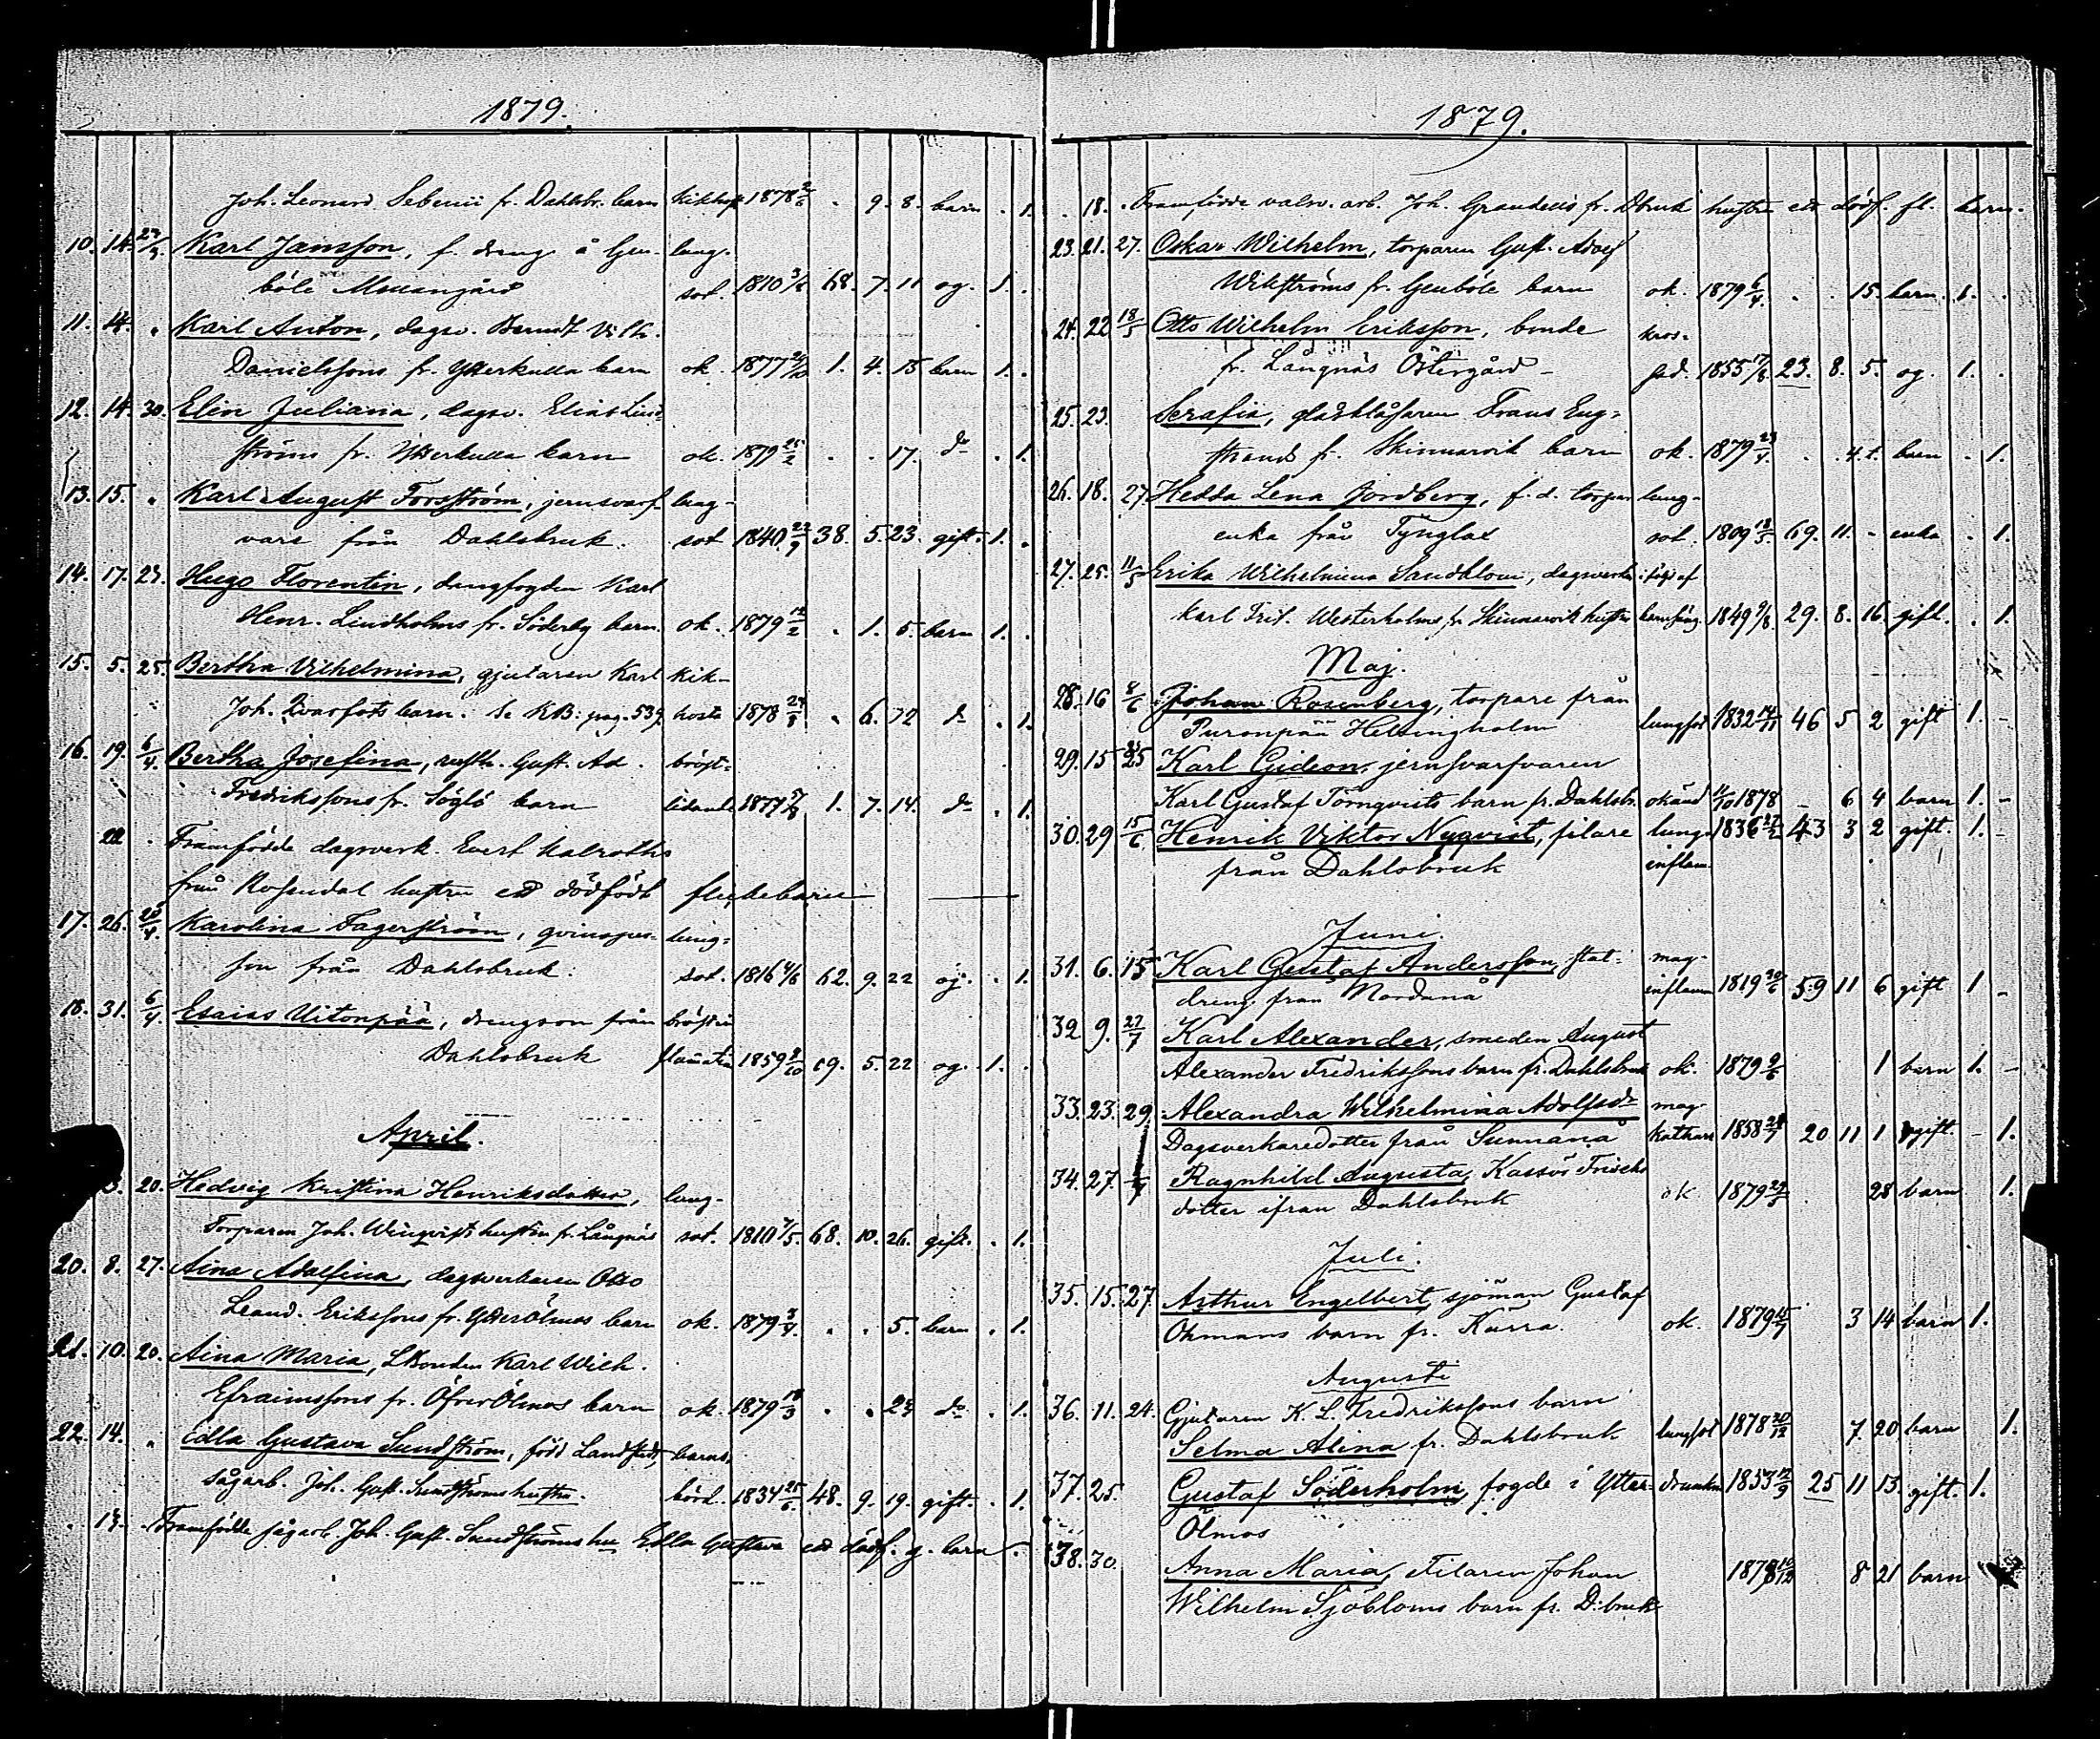 1879.
Joh. Leonard Sebenii fr. Dahlsbr. barn kikhost 1878 2/6 . 9. 8. barn . 1.
10. 14. 23/3 Karl Jansson, f. dreng å Gen- lung-
böle Mellangård sot. 1810 3/8 68. 7. 11 og. 1.
11. 14. „ Karl Anton, dagsv. Berndt Vilh.
Danielssons fr. Ytterkulla barn ok. 1877 29/10 1. 4. 15 barn 1.
12. 14. 30. Elin Juliana, dagsv. Elias Lind-
ströms fr. Ytterkulla barn ok. 1879 25/2 . . 17. do . 1.
13. 15. „ Karl August Forsström, jernsvarf- lung-
vare från Dahlsbruk. sot 1840 22/9 38. 5. 23. gift. 1.
14. 17. 23. Hugo Florentin, drengfogden Karl
Henr. Lindholms fr. Söderby barn. ok. 1879 12/2 . 1. 5. barn 1.
15. 5. 25. Bertha Vilhelmina, gjutaren Karl kik-
Joh. Qvarfots barn. Se KB: pag. 539. hosta 1878 24/8 . 6. 12 do . 1.
16. 19. 6/4. Bertha Josefina, Gust. Ad. bröst-
Fredrikssons fr. Söglö barn lidande 1877 5/8 1. 7. 14. do . 1.
22 . Framfödde dagsverk. Evert Kalroths
från Rosendal hustru ett dödfödt flickebarn
17. 26. 25/4. Karolina Fagerström, qvinsper- lung-
son från Dahlsbruk. sot. 1816 4/6 62. 9. 22 og. . 1.
18. 31. 6/4. Esaias Uitonpää, drengson från bröstin
Dahlsbruk flamation 1859 9/10 19. 5. 22 og. 1.
April.
3. 20. Hedvig Kristina Henriksdotter, lung-
Torparen Joh. Wingvists hustru fr. Långnäs sot. 1810 7/5. 68. 10. 26. gift. . 1.
20. 8. 27. Aina Adolfina, dagsverkaren Otto
Leand. Erikssons fr. YtterÖlmos barn ok. 1879 3/4. . . 5. barn . 1.
21. 10. 20. Aina Maria, Lbonden Karl Wilh.
Efraimssons fr. ÖfverÖlmos barn ok. 1879 18/3 . . 23 do . 1.
22. 14. „ Edla Gustava Sundström, född Landstedt, barns-
sågarb. Joh. Gust. Sundströms hustru. börd. 1834 25/6. 48. 9. 19. gift. . 1.
. 13. Framfödde sågarb. Joh. Gust. Sundströms hu Edla Gustava ett dödf. g. barn.
1879.
. 18. . Framfödde valsv. arb. Joh. Grandells fr. Dbruk hustru ett dödf. fl. barn.
23. 21. 27. Oskar Wilhelm, torparen Gust. Adolf
Wikströms fr. Genböle barn ok. 1879 6/4. . . 15. barn. 1. .
24. 22 18/5 Otto Wilhelm Eriksson, bonde
fr. Långnäs Östergård 1855 17/8. 23. 8. 5. og. 1. .
25. 23. Serafia, glasblåsaren Frans Eng-
strands fr. Skinnarvik barn ok. 1879 23/4. . . 4.t. barn . 1.
26. 18. 27. Hedda Lena Jordberg, f. d. torpar lung-
enka från Tynglax sot. 1809 18/5. 69. 11. - enka . 1.
27. 25. 11/5 Erika Wilhelmina Sandblom, dagsverk. i följd af
Karl Frit. Westerholms fr. Skinnarvik hustru barnsäng. 1849 9/8. 29. 8. 16. gift. . 1.
Maj.
28. 16 8/6 Johan Rosenberg, torpare från
Puronpää Helsingholm lungsot 1832 14/11 46 5 2 gift 1. -
29. 15 25 Karl Gideon, jernsvarfvaren
Karl Gustaf Törnqvists barn fr. Dahlsbr. okänd 11/10 1878 - 6 4 barn 1. -
30. 29 15/6 Henrik Viktor Nyqvist, filare lung- 1836 27/2 43 3 2 gift. 1. -
från Dahlsbruk inflam.
Juni.
31. 6. 15 Karl Gustaf Andersson, stat- mag-
dreng från Nordanå inflamm 1819 30/6 59 11 6 gift 1 -
32. 9. 27/7 Karl Alexander, smeden August
Alexander Fredrikssons barn fr. Dahlsbruk ok. 1879 9/6 1 barn 1. -
33. 23. 29. Alexandra Wilhelmina Adolfsdr mag-
Dagsverkaredotter från Sunnanå kattarr 1858 22/7 20 11 1 gift. - 1.
34. 27. Ragnhild Augusta, Kassör Frisch
dotter ifrån Dahlsbruk ok 1879 29/5 28 barn 1.
Juli.
35. 15. 27. Arthur Engelbert, sjöman Gustaf
Öhmans barn fr. Kärra. ok. 1879 3 14 barn 1.
Augusti
36. 11. 24. Gjutaren K. L. Fredrikssons barn
Selma Alina fr. Dahlsbruk lungsot 1878 20/12 7. 20 barn 1.
37. 25. Gustaf Söderholm, fogde i Ytter- drunkn 1853 12/9 25 11 13. gift. 1.
Ölmos
38. 30. Anna Maria, Filaren Johan 1878 10/12 8 21 barn
Wilhelm Sjöbloms barn fr. D:bruk